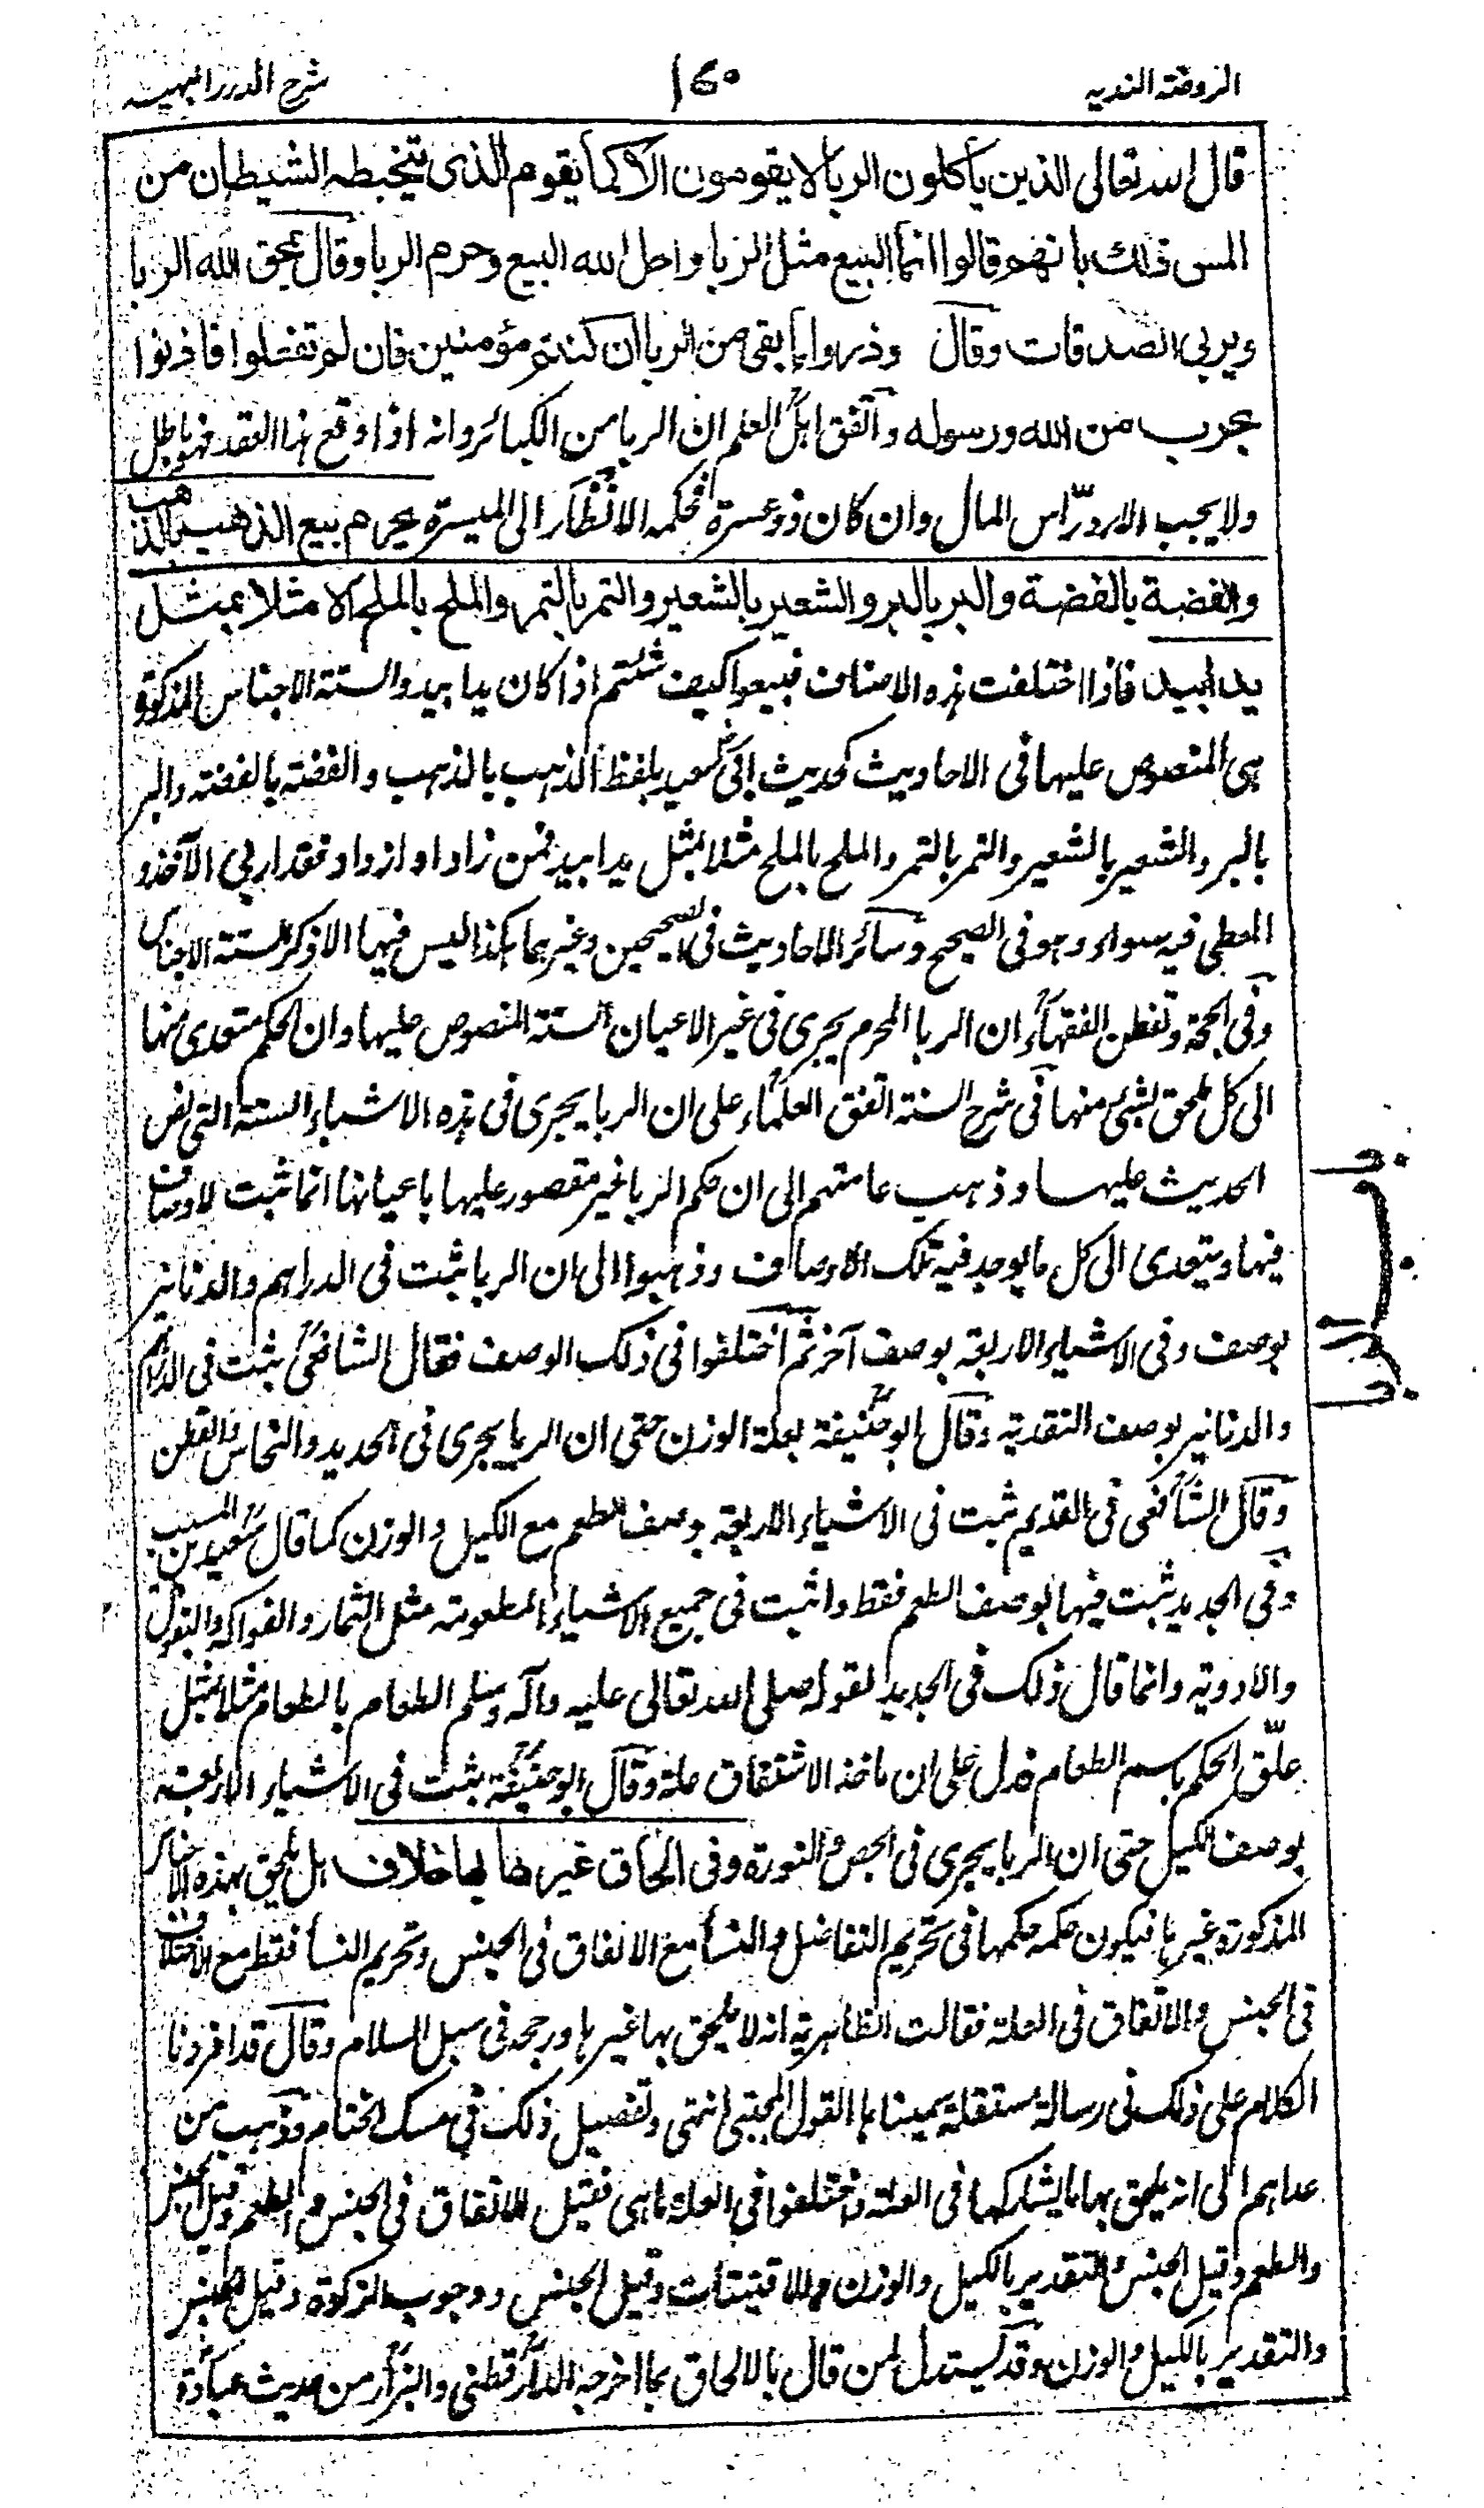 الروضة الندیه
۱۶۰
شرح الدرر البهیه
قال الله تعالی الذین یأکلون الربا لا یقومون الا کما یقوم الذی یتخبطه الشیطان من
المس ذلك بانهم قالوا انما البیع مثل الربا واحل الله البیع وحرم الربا وقال یمحق الله الربا
ویربی الصدقات وقال وذروا ما بقی من الربا ان کنتم مؤمنین فان لم تفعلوا فاذنوا
بحرب من الله ورسوله واتفق اهل العلم ان الربا من الکبائر وانه اذا وقع هذا العقد فهو باطل
ولا یجب الا رد رأس المال وان کان ذو عسرة فحکمه الانظار الی المیسرة یحرم بیع الذهب بالذهب
والفضة بالفضة والبر بالبر والشعیر بالشعیر والتمر بالتمر والملح بالملح الا مثلا بمثل
یدا بید فاذا اختلفت هذه الاصناف فبیعوا کیف شئتم اذا کان یدا بید والستة الاجناس المذکورة
هی المنصوص علیها فی الاحادیث کحدیث ابی سعید بلفظ الذهب بالذهب والفضة بالفضة والبر
بالبر والشعیر بالشعیر والتمر بالتمر والملح بالملح مثلا بمثل یدا بید فمن زاد او ازداد فقد اربی الآخذ و
المعطی فیه سواء وهو فی الصحیح وسائر الاحادیث فی الصحیحین وغیرهما هکذا لیس فیها الا ذکر الستة الاجناس
وفی الحجة وتفطن الفقهاء ان الربا المحرم یجری فی غیر الاعیان الستة المنصوص علیها وان الحکم متعدی منها
الی کل ملحق بشیء منها فی شرح السنة اتفق العلماء علی ان الربا یجری فی هذه الاشیاء الستة التی نص
الحدیث علیها وذهب عامتهم الی ان حکم الربا غیر مقصور علیها باعیانها انما ثبت لاوصاف
فیها ویتعدی الی کل ما یوجد فیه تلک الاوصاف وذهبوا الی ان الربا ثبت فی الدراهم والدنانیر
بوصف وفی الاشیاء الاربعة بوصف آخر ثم اختلفوا فی ذلک الوصف فقال الشافعی ثبت فی الدراهم
والدنانیر بوصف النقدیة وقال ابو حنیفة بعلة الوزن حتی ان الربا یجری فی الحدید والنحاس والقطن
وقال الشافعی فی القدیم ثبت فی الاشیاء الاربعة بوصف الطعم مع الکیل والوزن کما قال سعید بن المسیب
وفی الجدید ثبت فیها بوصف الطعم فقط واثبت فی جمیع الاشیاء المطعومة مثل الثمار والفواکه والبقول
والادویة وانما قال ذلک فی الجدید لقوله صلی الله تعالی علیه وآله وسلم الطعام بالطعام مثلا بمثل
علّق الحکم باسم الطعام فدل علی ان ماخذ الاشتقاق علة وقال ابو حنیفة ثبت فی الاشیاء الاربعة
بوصف الکیل حتی ان الربا یجری فی الجص والنورة وفی الحاق غیرها بها خلاف هل یلحق بهذه الاجناس
المذکورة غیرها فیکون حکمه حکمها فی تحریم التفاضل والنسأ مع الاتفاق فی الجنس وتحریم النسأ فقط مع الاختلاف
فی الجنس والاتفاق فی العلة فقالت الظاهریة انه لا یلحق بها غیرها ورجحه فی سبل السلام وقال قد افردنا
الکلام علی ذلک فی رسالة مستقلة سمیناها القول المجتبی انتهی وتفصیل ذلک فی مسک الختام وذهب من
عداهم الی انه یلحق بها ما یشارکها فی العلة واختلفوا فی العلة ما هی فقیل الاتفاق فی الجنس والطعم وقیل الجنس
والطعم وقیل الجنس والتقدیر بالکیل والوزن والاقتیات وقیل الجنس ووجوب الزکوة وقیل الجنس
والتقدیر بالکیل والوزن وقد یستدل لمن قال بالالحاق بما اخرجه الدارقطنی والبزار من حدیث عبادة